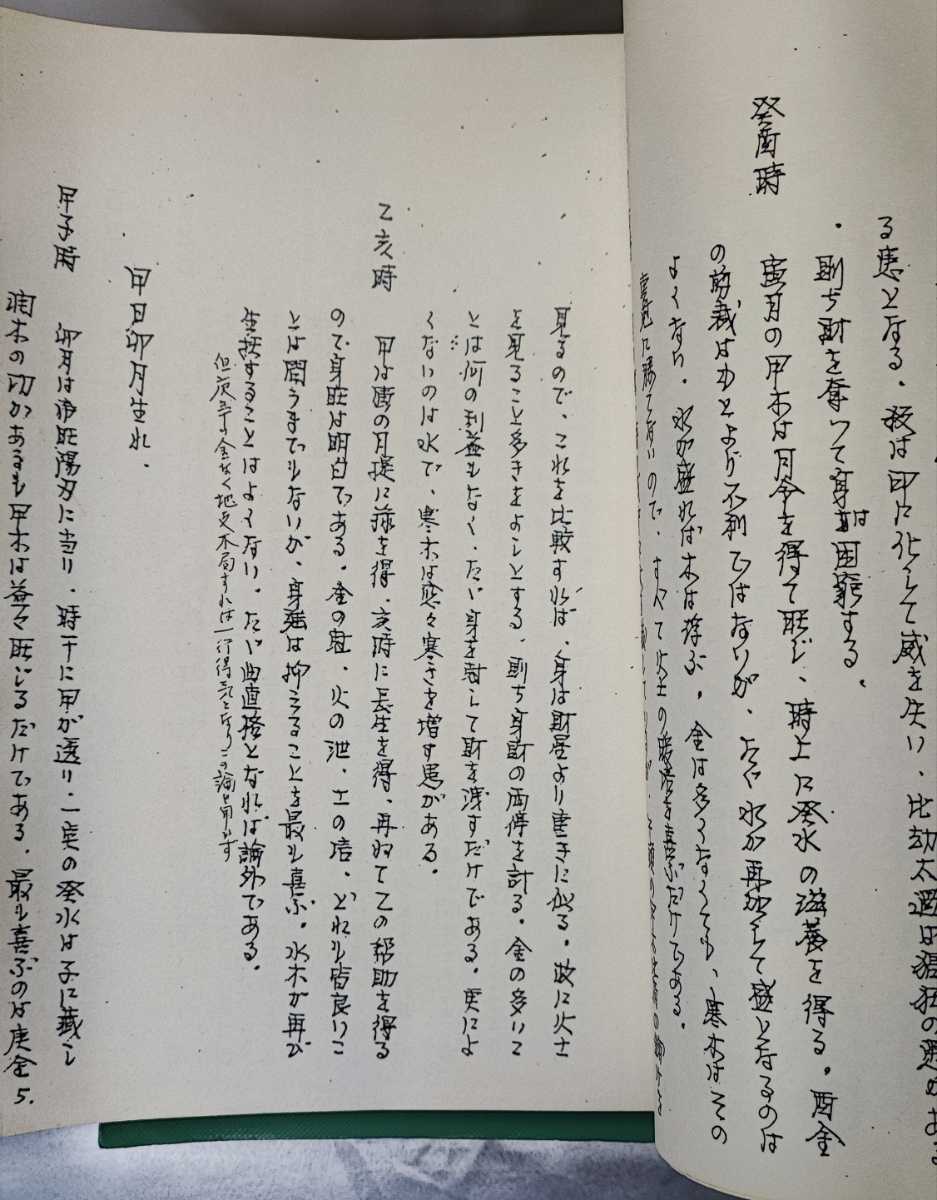 る患となる。殺は印に化して威を失い、比劫太過は猖狂の患がある
。則ち財を奪って身は困窮する。
癸酉時
寅月の甲木は月令を得て旺じ、時上に癸水の滋養を得る。酉金
の剪裁はもとより不利ではないが、ただ水が再発して盛となるのは
よくない。水が盛れば木は浮ぶ。金は多くなくても、寒木はその
ので、すべて火土の暖
を喜ぶだけである。
見るので、これを比較すれば、身は財星より重きに似る。故に火土
を見ること多きをよしとする。則ち身財の両停を計る。金の多いこ
とは何の利益もなく、たゞ身を尅して財を洩すだけである。更によ
くないのは水で、寒木は愈々寒さを増す患がある。
乙亥時
甲は寅の月提に禄を得、亥時に長生を得、再ねて乙の帮助を得る
ので身旺は明白である。金の尅、火の泄、土の培、どれも皆良いこ
とは問うまでもないが、身強は抑えることを最も喜ぶ。水木が再び
生扶することはよくない。たゞ曲直格となれば論外である。
但庚辛金なく地支木局すれば一行得気となりこの論を用いず
甲日卯月生れ.
甲子時
卯月は帝旺陽刃に当り、時干に甲が透り、一点の癸水は子に蔵し
潤木の功があるも甲木は益々旺じるだけである。最も喜ぶのは庚金
5.